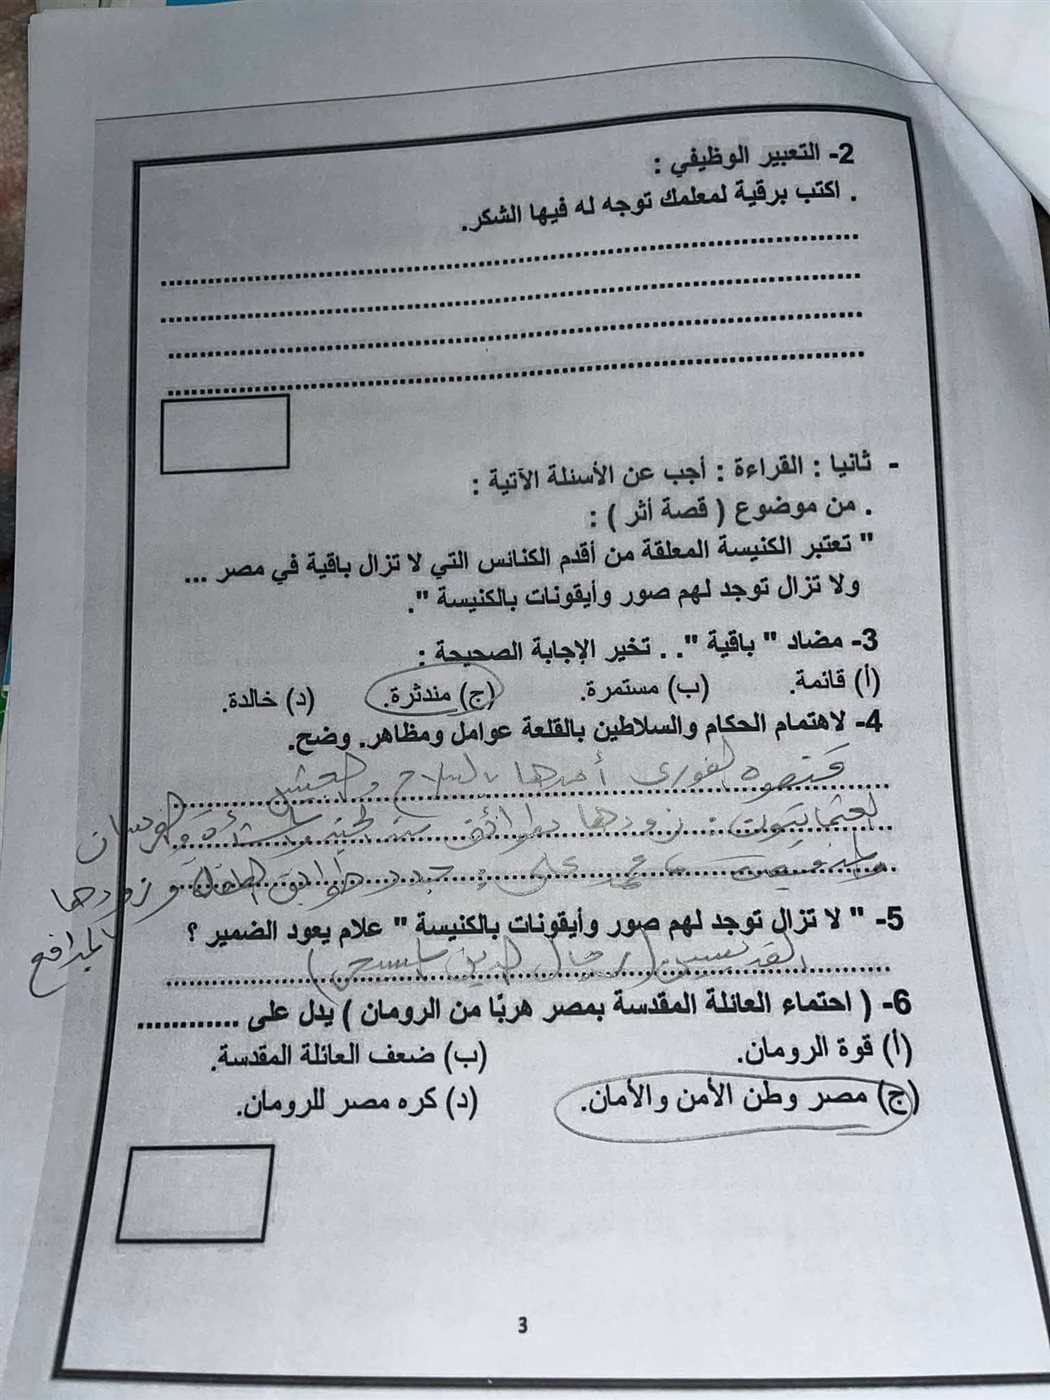 2- التعبير الوظيفي :
. اكتب برقية لمعلمك توجه له فيها الشكر.
- ثانيا : القراءة : أجب عن الأسئلة الآتية :
. من موضوع ( قصة أثر ) :
" تعتبر الكنيسة المعلقة من أقدم الكنائس التي لا تزال باقية في مصر ...
ولا تزال توجد لهم صور وأيقونات بالكنيسة ".
3- مضاد " باقية ". . تخير الإجابة الصحيحة :
(أ) قائمة. (ب) مستمرة. (ج) مندثرة. (د) خالدة.
4- لاهتمام الحكام والسلاطين بالقلعة عوامل ومظاهر. وضح.
قنصوه الغورى أمدها بالسلاح والجيش
العثمانيون : زودها بطوائف من
محمد على : جدد وزودها
بالمدافع
5- " لا تزال توجد لهم صور وأيقونات بالكنيسة " علام يعود الضمير ؟
القديسين (رجال الدين المسيحى)
6- ( احتماء العائلة المقدسة بمصر هربًا من الرومان ) يدل على ............
(أ) قوة الرومان. (ب) ضعف العائلة المقدسة.
(ج) مصر وطن الأمن والأمان. (د) كره مصر للرومان.
3